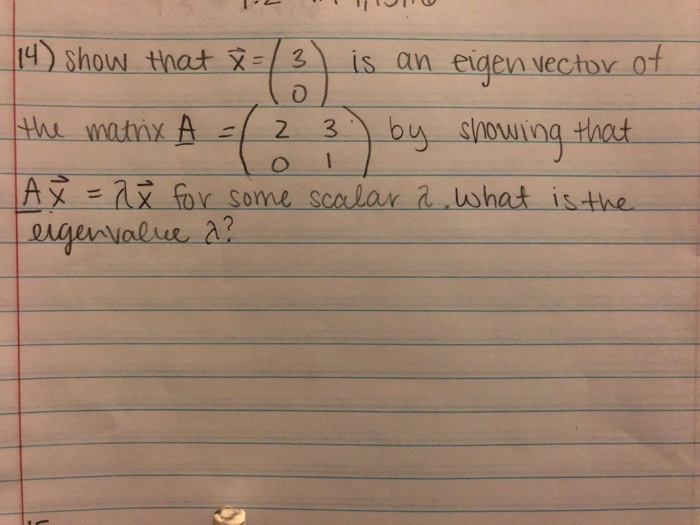 14) show that x⃗ = ( 3 ) is an eigenvector of
0
the matrix A = ( 2 3 ) by showing that
0 1
Ax⃗ = λx⃗ for some scalar λ. What is the
eigenvalue λ?